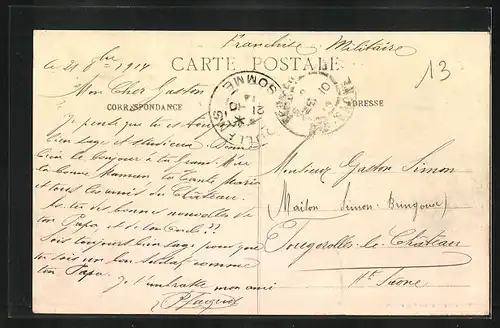 Franchise Militaire
le 21 8bre 1914
CARTE POSTALE
13
Mon Cher Gaston
CORRESPONDANCE
ADRESSE
SOMME
21 -10
Je pense que tu es toujours
bien sage et studieux. Donne
bien le bonjour à ta Grand Mère
ta bonne Maman ta Tante Maria
et tous les amis du Château.
As-tu des bonnes nouvelles de
ton Papa et de ton Oncle ??
Sois toujours bien sage pour que
tu sois un bon Soldat comme
ton Papa.
Je t'embrasse mon ami
Monsieur Gaston Simon
Maison Simon-
Fougerolles-le-Château
Hte Saone